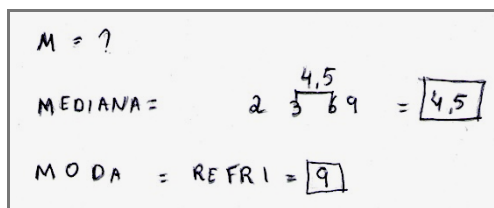 M = ?
4,5
MEDIANA = 2 3 6 9 = 4,5
MODA = REFRI = 9